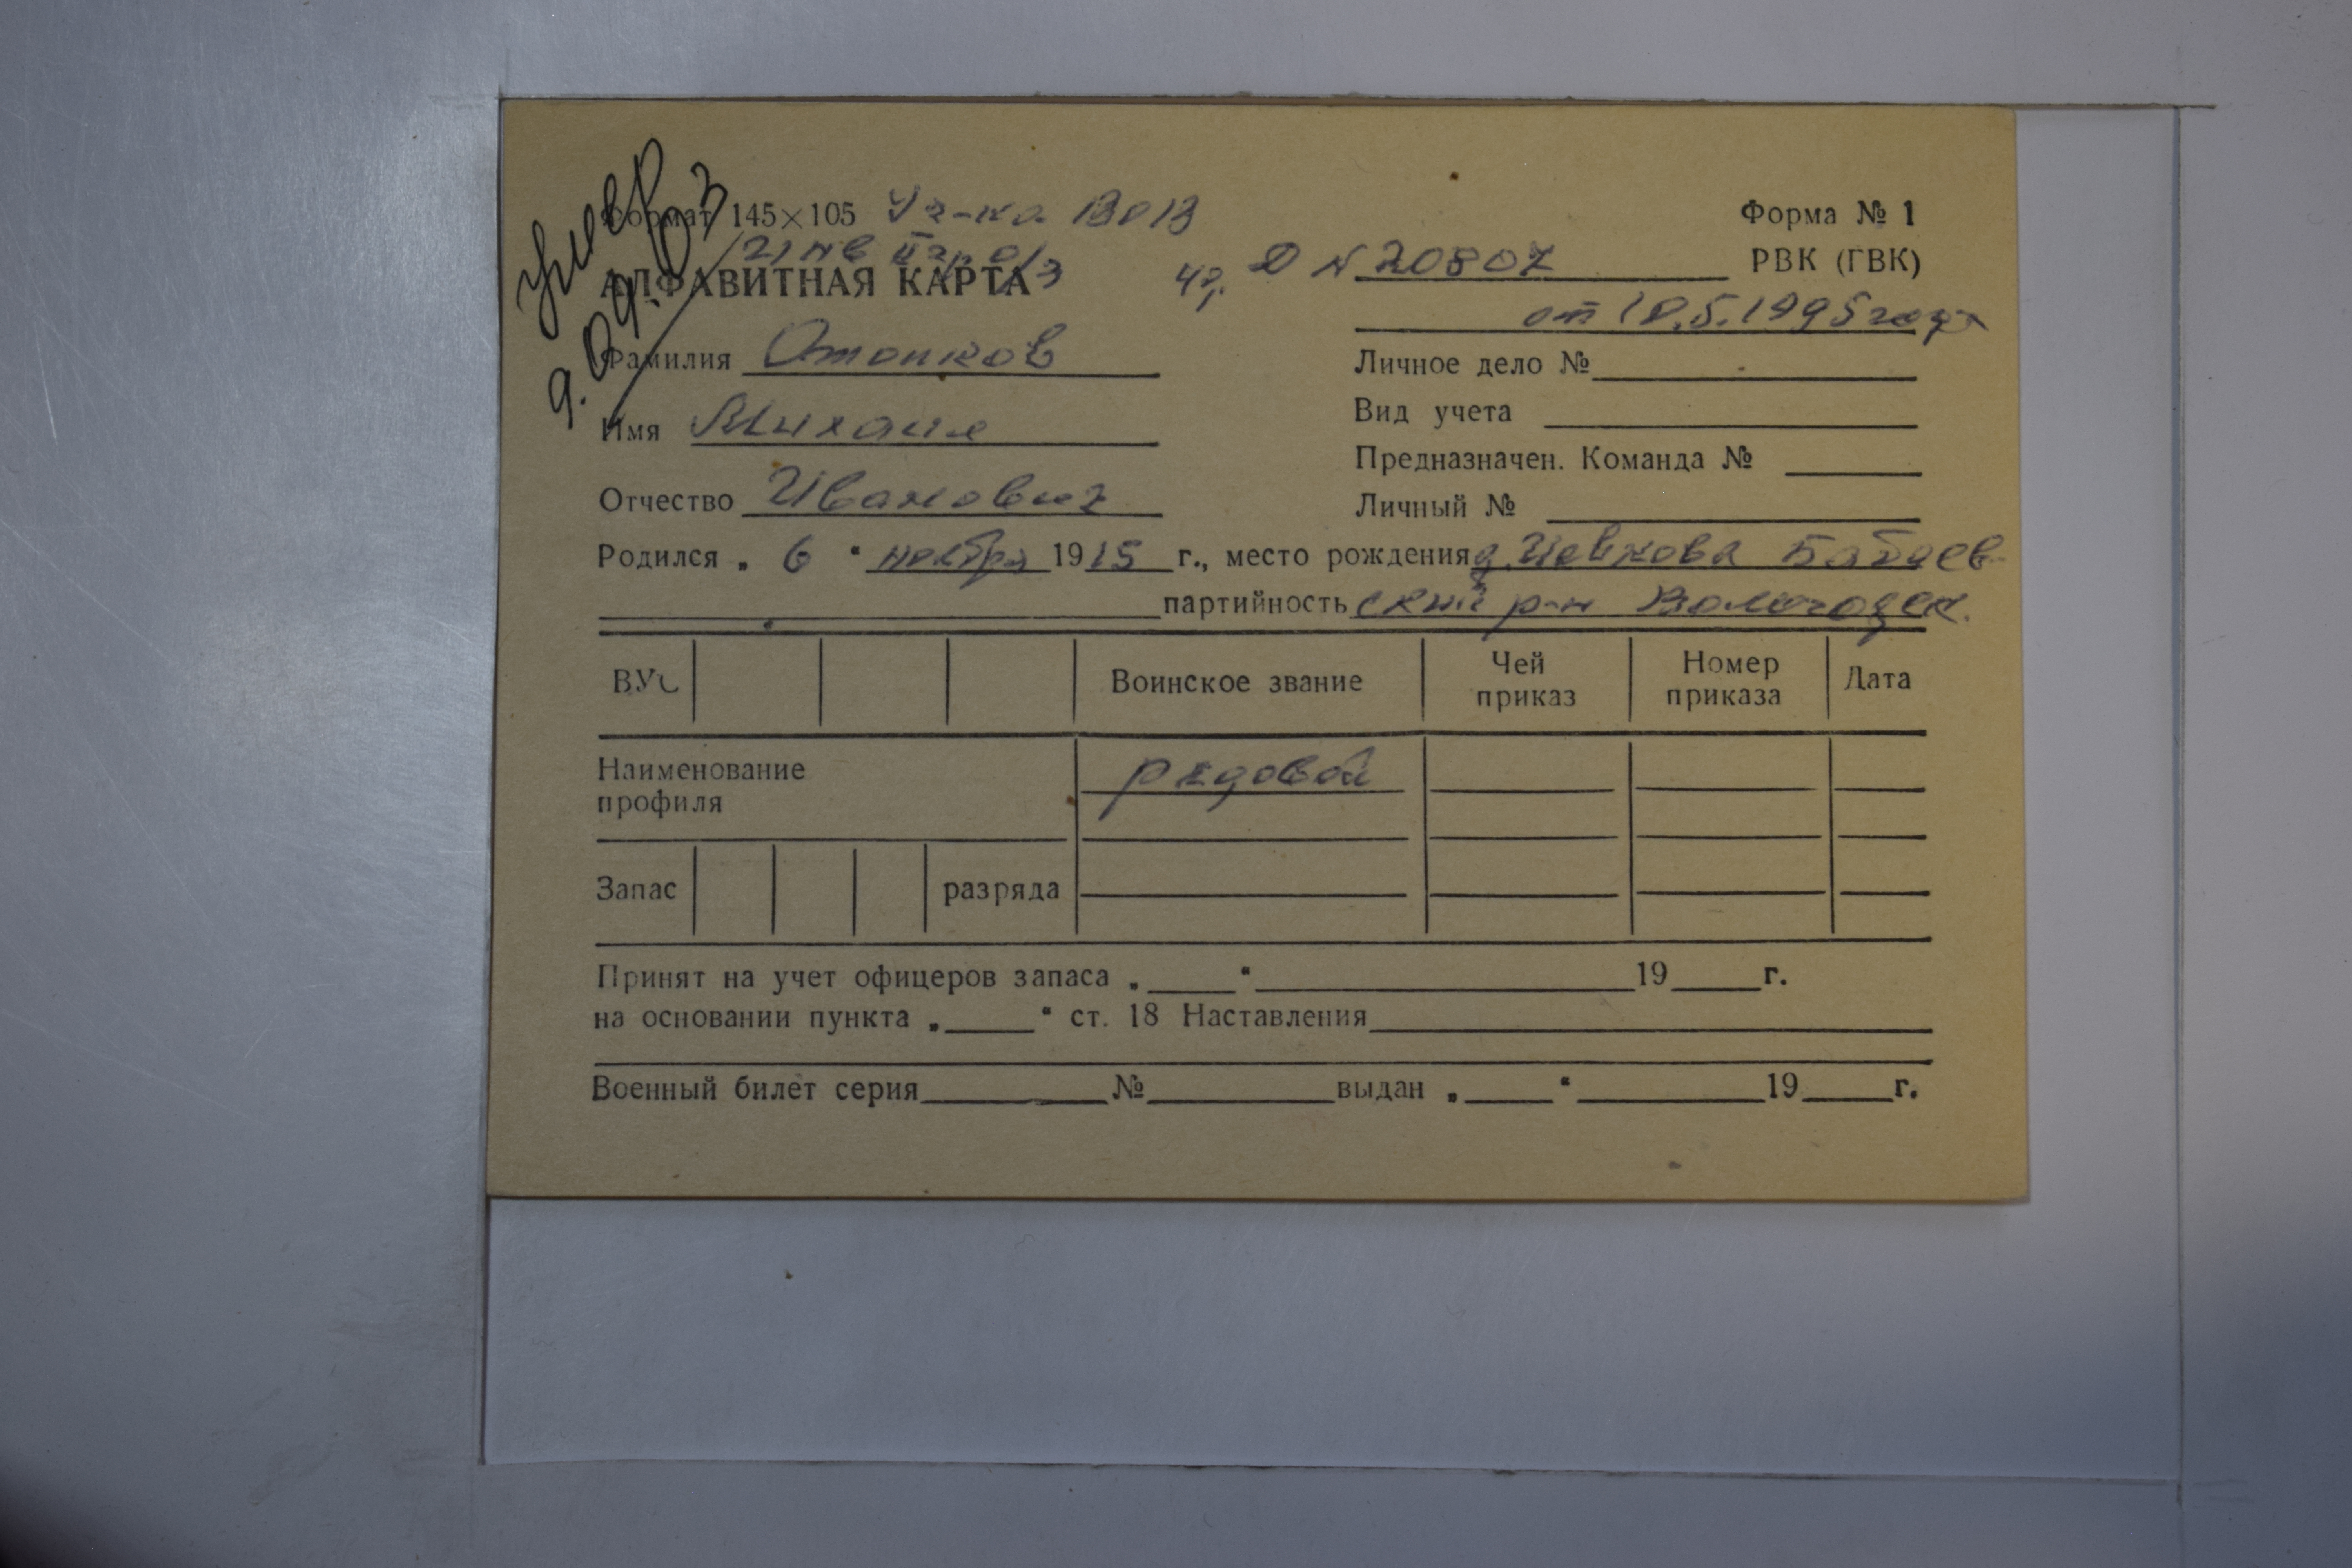 умер
9.09.03
Формат 145×105 Уч-ка ВОВ
Форма № 1
Инв II гр о/з
АЛФАВИТНАЯ КАРТА
Д № 20807 РВК (ГВК)
от 18.5.1995 года
Фамилия Отопков
Личное дело №
Имя Михаил
Вид учета
Предназначен. Команда №
Отчество Иванович
Личный №
Родился „ 6 " ноября 1915 г., место рождения д. Бабаев-
партийность ский р-н Вологодск.
ВУС Воинское звание Чей приказ Номер приказа Дата
Наименование профиля рядовой
Запас разряда
Принят на учет офицеров запаса „ " 19 г.
на основании пункта „ " ст. 18 Наставления
Военный билет серия № выдан „ " 19 г.